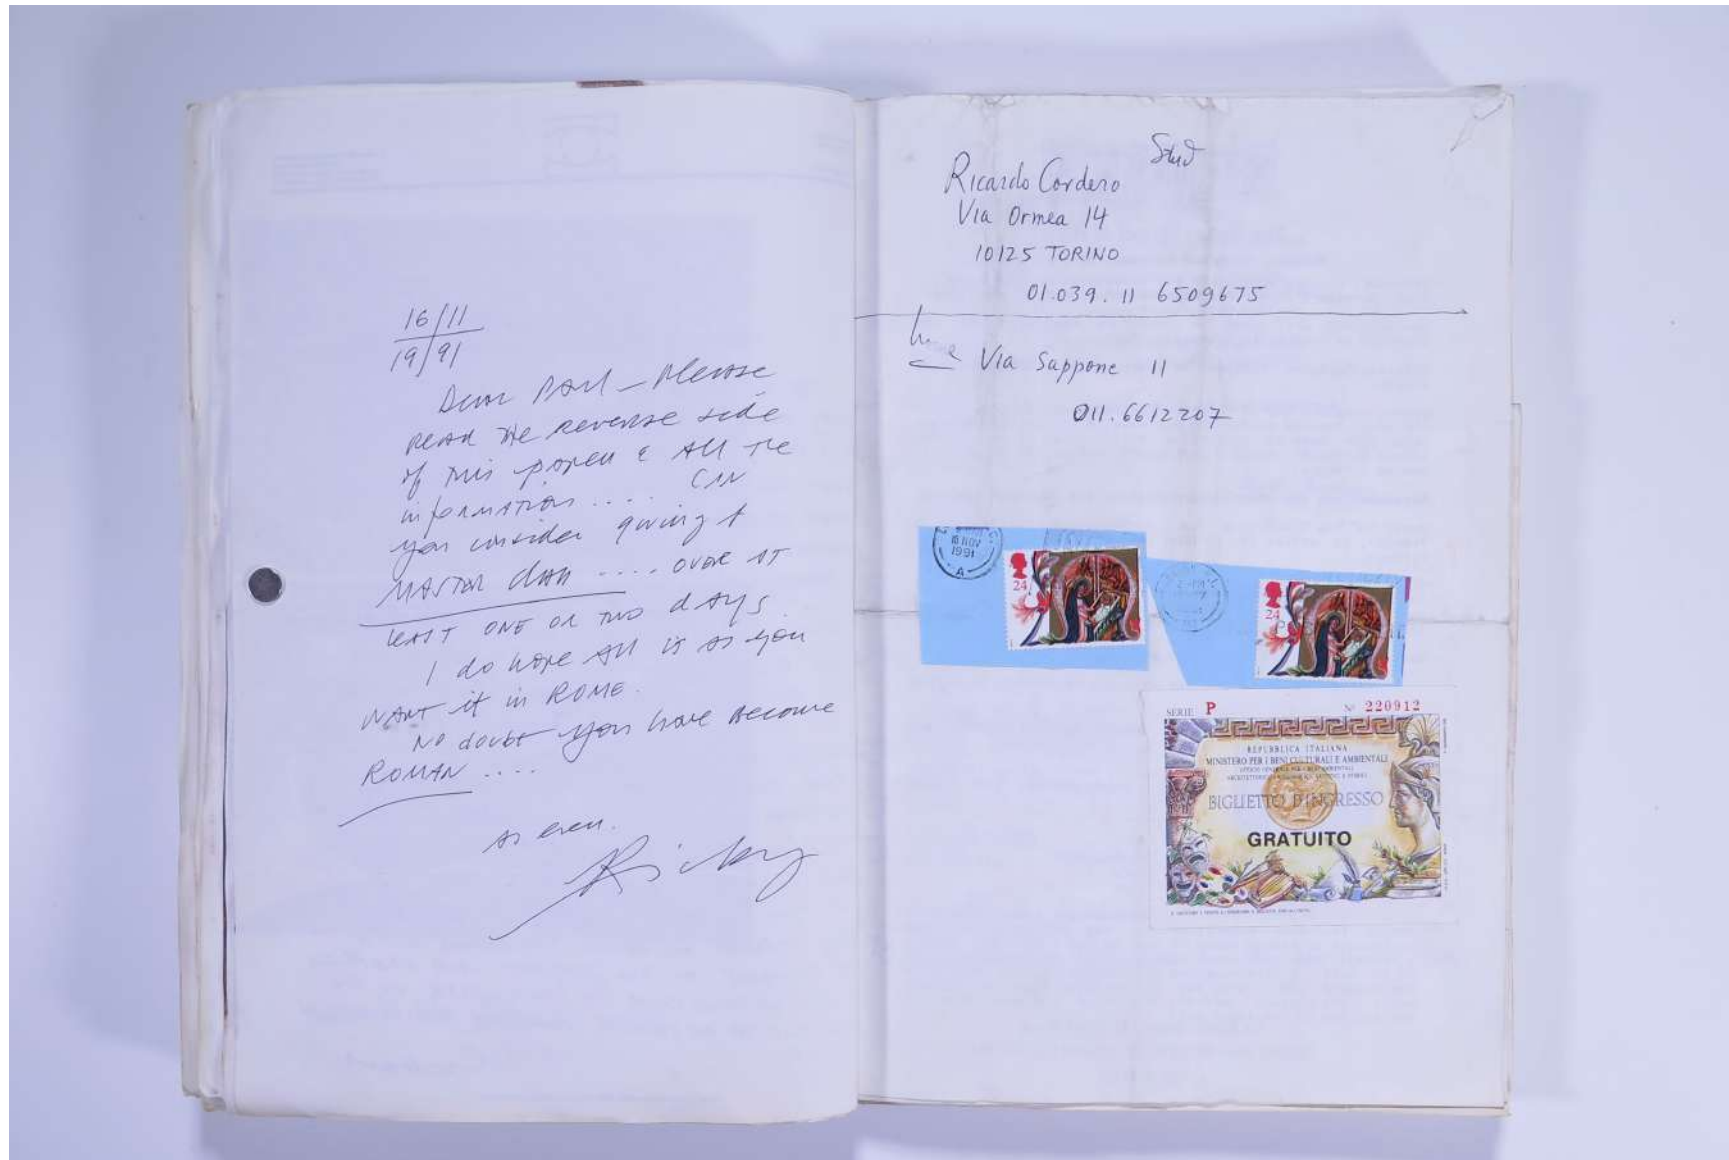 16/11
19/91
Dear Paul - Please
read the reverse side
of this paper & all the
information .... Can
you consider giving a
MASTER CLASS .... over at
least ONE OR TWO days.
I do hope all is as you
want it in ROME.
No doubt you have become
ROMAN ....
as ever.
Ricky
Stud
Ricardo Cordero
Via Ormea 14
10125 TORINO
01.039. 11 6509675
home Via Sappone 11
011.6612207
18 NOV
1991
A
24
24
SERIE P Nº 220912
REPUBBLICA ITALIANA
MINISTERO PER I BENI CULTURALI E AMBIENTALI
BIGLIETTO D'INGRESSO
GRATUITO